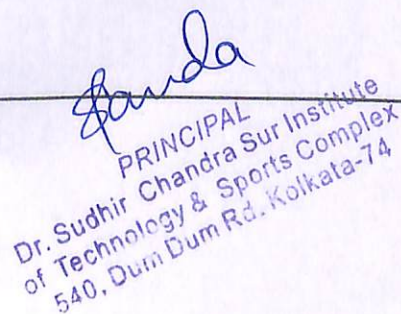 PRINCIPAL
Dr. Sudhir Chandra Sur Institute
of Technology & Sports Complex
540, Dum Dum Rd. Kolkata-74